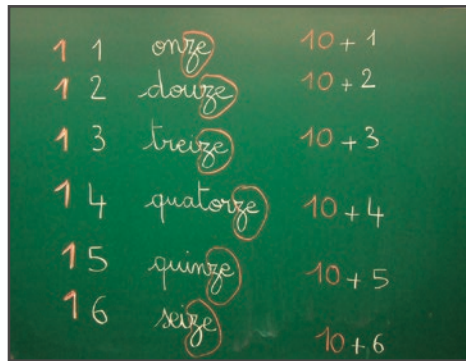 11 onze 10 + 1
12 douze 10 + 2
13 treize 10 + 3
14 quatorze 10 + 4
15 quinze 10 + 5
16 seize 10 + 6